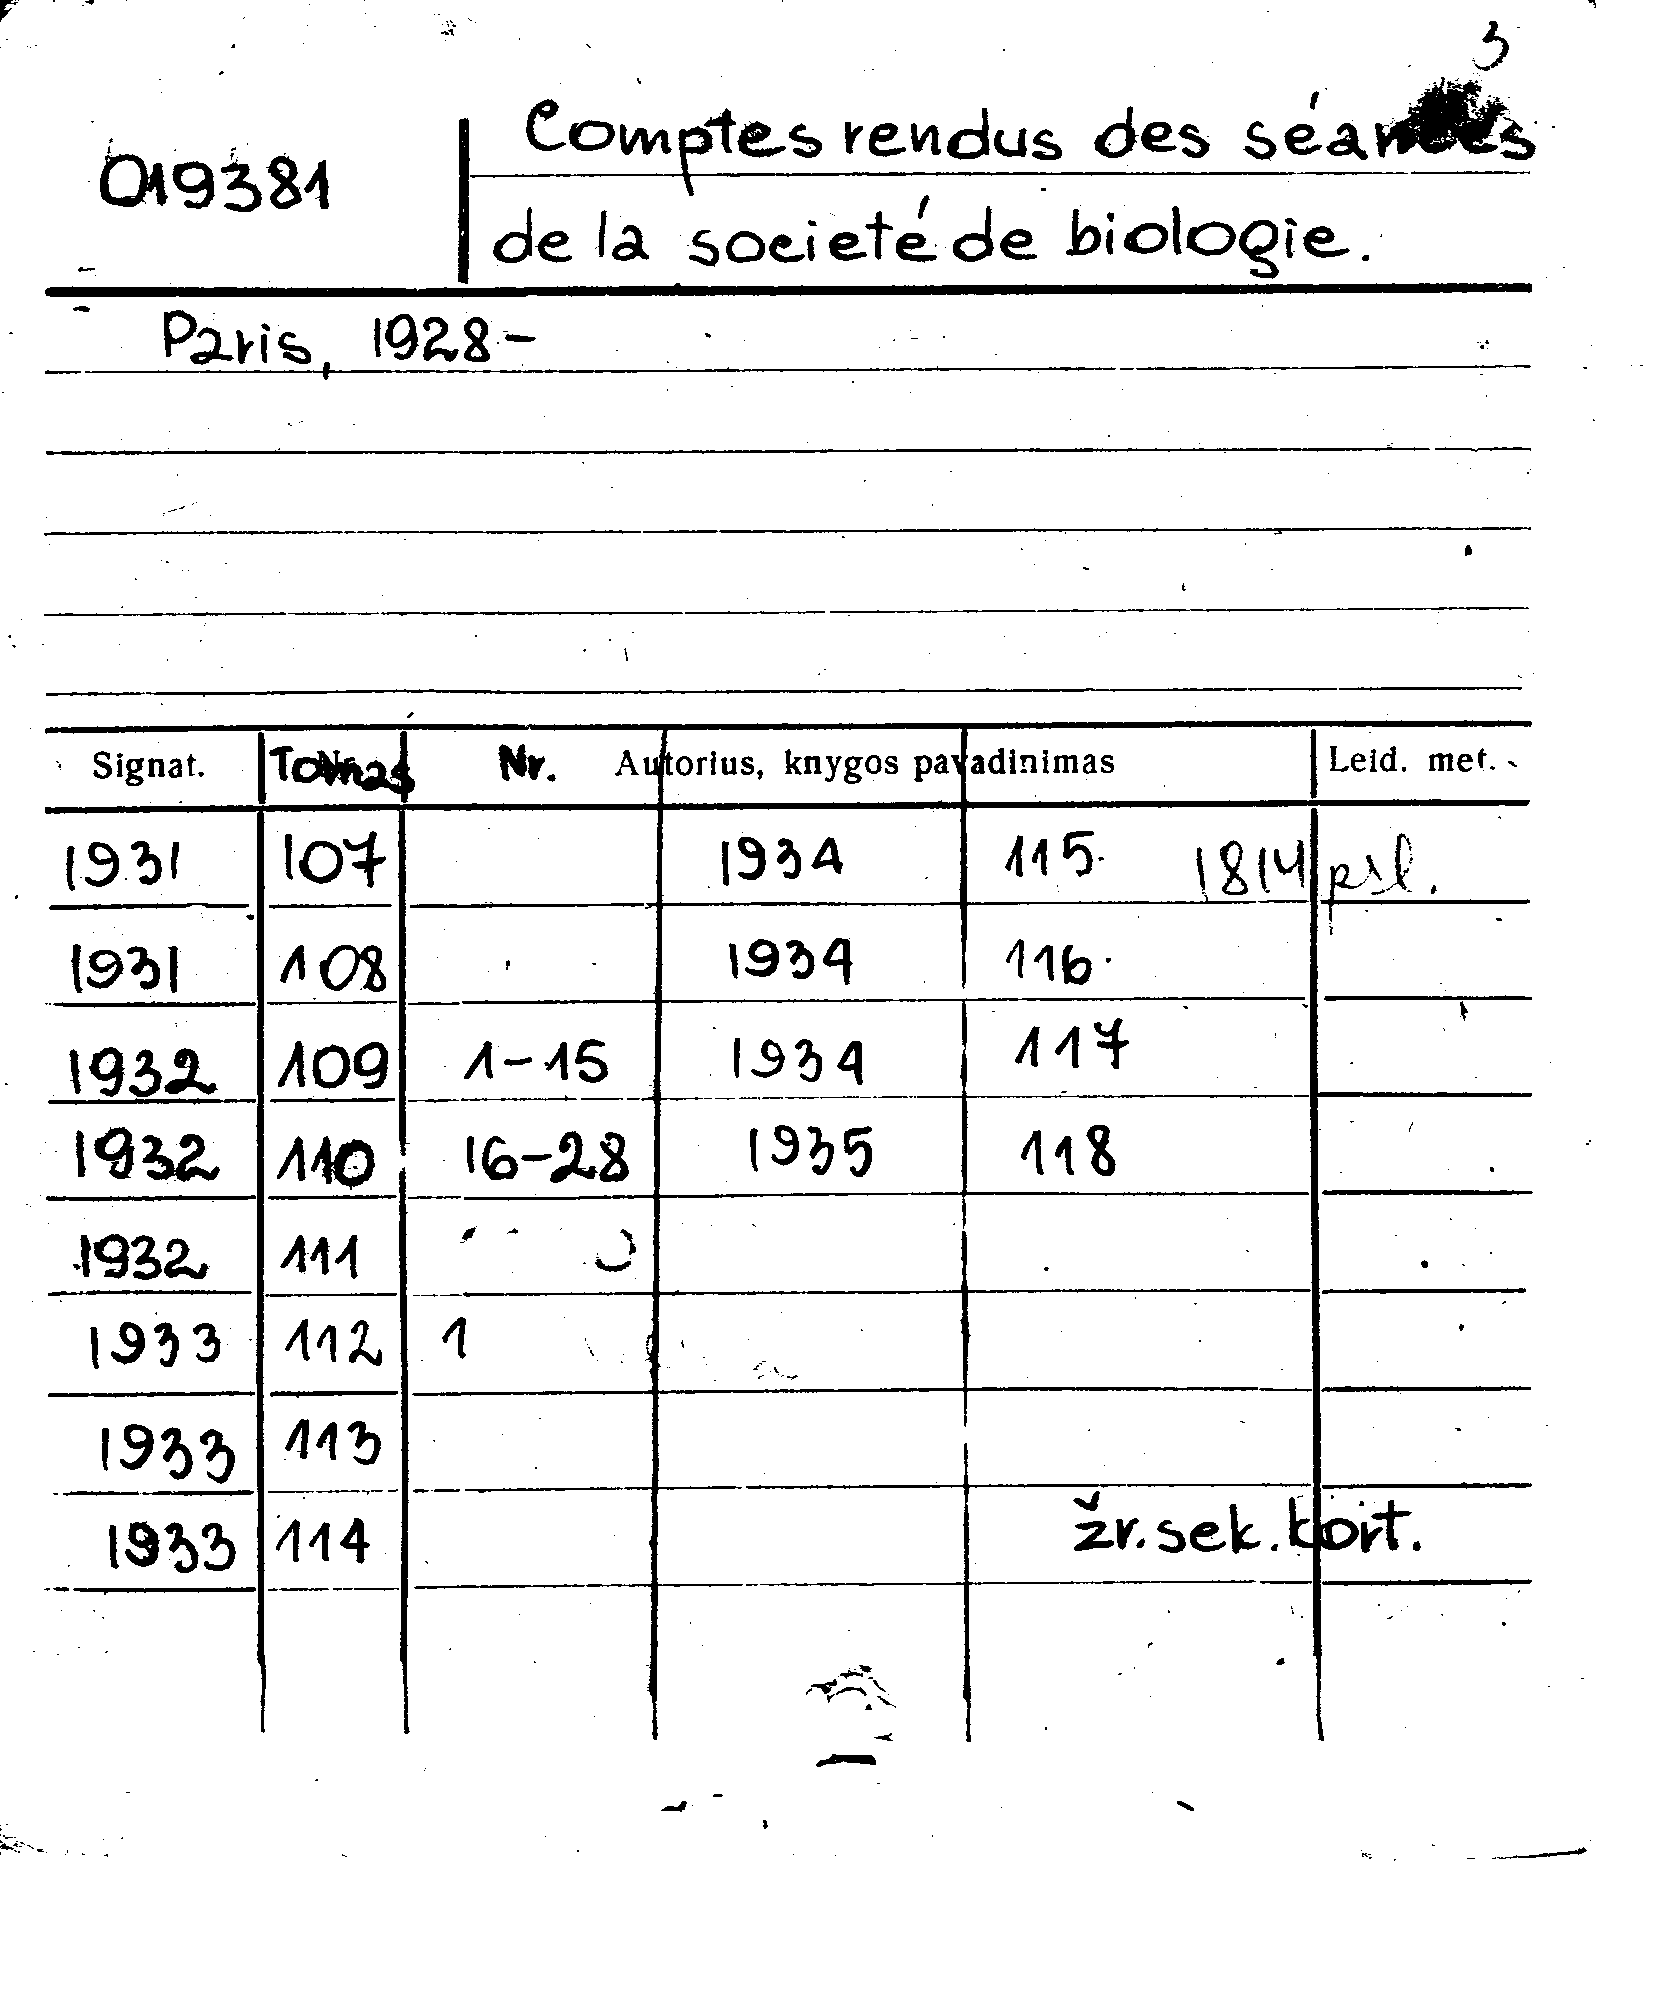 3
019381 Comptes rendus des séances
de la societé de biologie.
Paris, 1928-
Signat. Tomas Nr. Autorius, knygos pavadinimas Leid. met.
1931 107 1934 115 1814 psl.
1931 108 1934 116
1932 109 1-15 1934 117
1932 110 16-28 1935 118
1932 111
1933 112 1
1933 113
1933 114 žr. sek. kort.